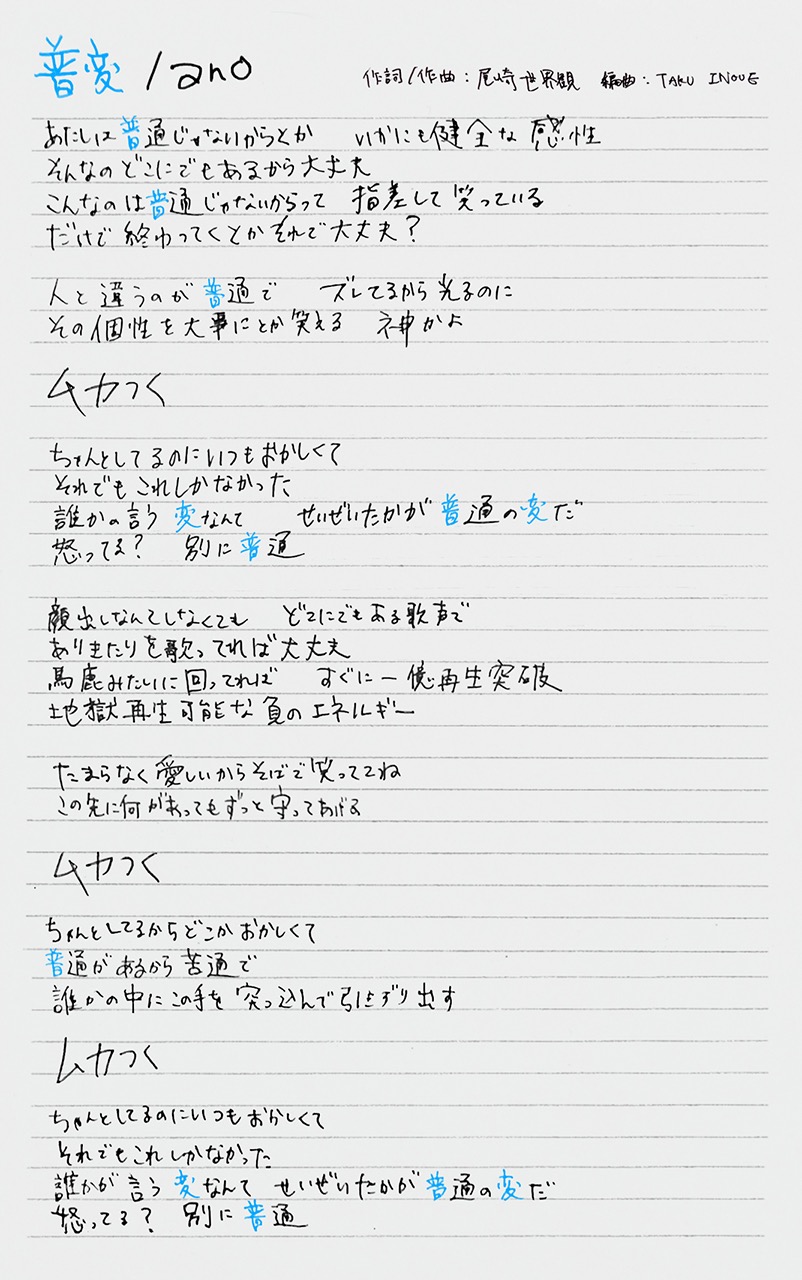 普変 / ano
作詞/作曲:尾崎世界観 編曲:TAKU INOUE
あたしは普通じゃないからとか いかにも健全な感性
そんなのどこにでもあるから大丈夫
こんなのは普通じゃないからって 指差して笑っている
だけで終わってくとかそれで大丈夫?
人と違うのが普通で ズレてるから光るのに
その個性を大事にとか笑える 神かよ
ムカつく
ちゃんとしてるのにいつもおかしくて
それでもこれしかなかった
誰かの言う変なんて せいぜいたかが普通の変だ
怒ってる? 別に普通
顔出しなんてしなくても どこにでもある歌声で
ありきたりを歌ってれば大丈夫
馬鹿みたいに回ってれば すぐに一億再生突破
地獄再生可能な負のエネルギー
たまらなく愛しいからそばで笑っててね
この先に何があってもずっと守ってあげる
ムカつく
ちゃんとしてるからどこかおかしくて
普通があるから苦通で
誰かの中にこの手を突っ込んで引きずり出す
ムカつく
ちゃんとしてるのにいつもおかしくて
それでもこれしかなかった
誰かが言う変なんて せいぜいたかが普通の変だ
怒ってる? 別に普通